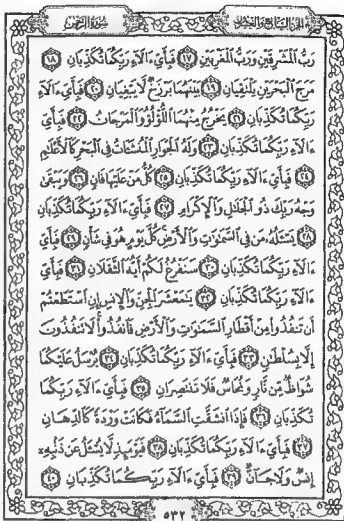 الجزء السابع والعشرون سورة الرحمن
رَبُّ الْمَشْرِقَيْنِ وَرَبُّ الْمَغْرِبَيْنِ ﴿١٧﴾ فَبِأَيِّ ءَالَآءِ رَبِّكُمَا تُكَذِّبَانِ ﴿١٨﴾
مَرَجَ الْبَحْرَيْنِ يَلْتَقِيَانِ ﴿١٩﴾ بَيْنَهُمَا بَرْزَخٌ لَّا يَبْغِيَانِ ﴿٢٠﴾ فَبِأَيِّ ءَالَآءِ
رَبِّكُمَا تُكَذِّبَانِ ﴿٢١﴾ يَخْرُجُ مِنْهُمَا اللُّؤْلُؤُ وَالْمَرْجَانُ ﴿٢٢﴾ فَبِأَيِّ
ءَالَآءِ رَبِّكُمَا تُكَذِّبَانِ ﴿٢٣﴾ وَلَهُ الْجَوَارِ الْمُنشَئَاتُ فِي الْبَحْرِ كَالْأَعْلَامِ
﴿٢٤﴾ فَبِأَيِّ ءَالَآءِ رَبِّكُمَا تُكَذِّبَانِ ﴿٢٥﴾ كُلُّ مَنْ عَلَيْهَا فَانٍ ﴿٢٦﴾ وَيَبْقَىٰ
وَجْهُ رَبِّكَ ذُو الْجَلَالِ وَالْإِكْرَامِ ﴿٢٧﴾ فَبِأَيِّ ءَالَآءِ رَبِّكُمَا تُكَذِّبَانِ
﴿٢٨﴾ يَسْـَٔلُهُ مَن فِي السَّمَٰوَٰتِ وَالْأَرْضِ كُلَّ يَوْمٍ هُوَ فِي شَأْنٍ ﴿٢٩﴾ فَبِأَيِّ
ءَالَآءِ رَبِّكُمَا تُكَذِّبَانِ ﴿٣٠﴾ سَنَفْرُغُ لَكُمْ أَيُّهَ الثَّقَلَانِ ﴿٣١﴾ فَبِأَيِّ
ءَالَآءِ رَبِّكُمَا تُكَذِّبَانِ ﴿٣٢﴾ يَٰمَعْشَرَ الْجِنِّ وَالْإِنسِ إِنِ اسْتَطَعْتُمْ
أَن تَنفُذُوا مِنْ أَقْطَارِ السَّمَٰوَٰتِ وَالْأَرْضِ فَانفُذُوا لَا تَنفُذُونَ
إِلَّا بِسُلْطَٰنٍ ﴿٣٣﴾ فَبِأَيِّ ءَالَآءِ رَبِّكُمَا تُكَذِّبَانِ ﴿٣٤﴾ يُرْسَلُ عَلَيْكُمَا
شُوَاظٌ مِّن نَّارٍ وَنُحَاسٌ فَلَا تَنتَصِرَانِ ﴿٣٥﴾ فَبِأَيِّ ءَالَآءِ رَبِّكُمَا
تُكَذِّبَانِ ﴿٣٦﴾ فَإِذَا انشَقَّتِ السَّمَآءُ فَكَانَتْ وَرْدَةً كَالدِّهَانِ
﴿٣٧﴾ فَبِأَيِّ ءَالَآءِ رَبِّكُمَا تُكَذِّبَانِ ﴿٣٨﴾ فَيَوْمَئِذٍ لَّا يُسْـَٔلُ عَن ذَنبِهِ
إِنسٌ وَلَا جَآنٌّ ﴿٣٩﴾ فَبِأَيِّ ءَالَآءِ رَبِّكُمَا تُكَذِّبَانِ ﴿٤٠﴾
٥٣٢